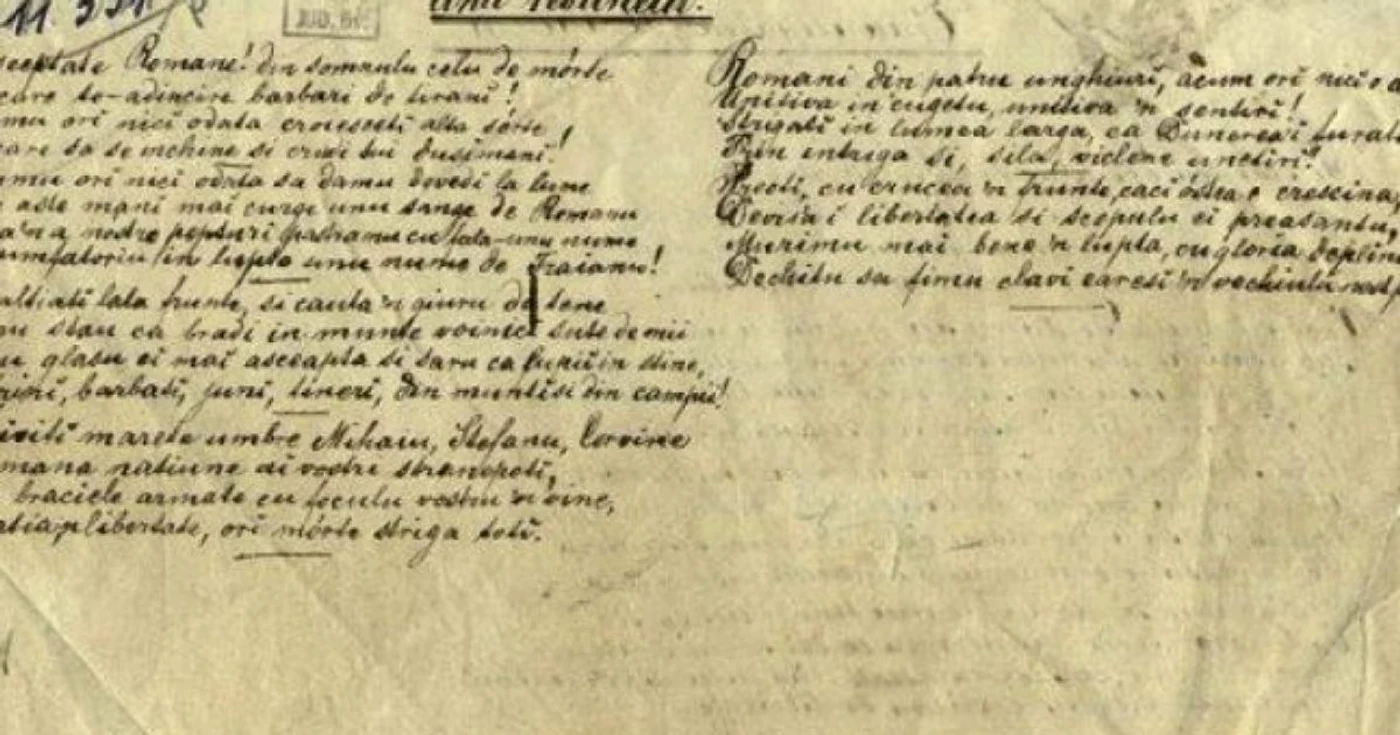 11 391
JUD.
Anul Rěsunetu.
sceptate Romane! din somnulu celu de mórte
care te-adincire barbari de tirani!
mu ori nici odata croiesceti alta sórte,
care sa se inchine si crudi tui dusimani!
mu ori nici odata sa damu dovedi la lume
aste mani mai curge unu sange de Romanu
a'n a nostre pepturi pastramu cu fala-unu nume
umfatoriu in lupte unu nume de Traianu!
altiati lata frunte, si cauta 'n giuru de tene
u stau ca bradi in munte voinici sute de mii
u glasu ei mai asceapta si saru ca lupii in stine,
rini, barbati, juni, tineri, din muntisi din campii!
iviti marete umbre Mihaiu, Stefanu, Corvine
mana natiune ai vostri stranepoti,
braciele armate cu foculu vostru 'n vine,
atia'n libertate, ori mórte striga toti.
Romani din patru unghiuri, acum ori nici o
Unitiva in cugetu, unitiva 'n sentiri!
Strigati in lumea larga, ca Dunerea'i furat
Prin intriga si, sila, viclene unetiri!
Preoti, cu crucea 'n frunte, caci óstea e crescina,
Devisa i libertatea si scopulu ei preasantu,
Murimu mai bene 'n lupta, cu gloria deplin
Dechitu sa fimu sclavi earesi 'n vechiulu nost